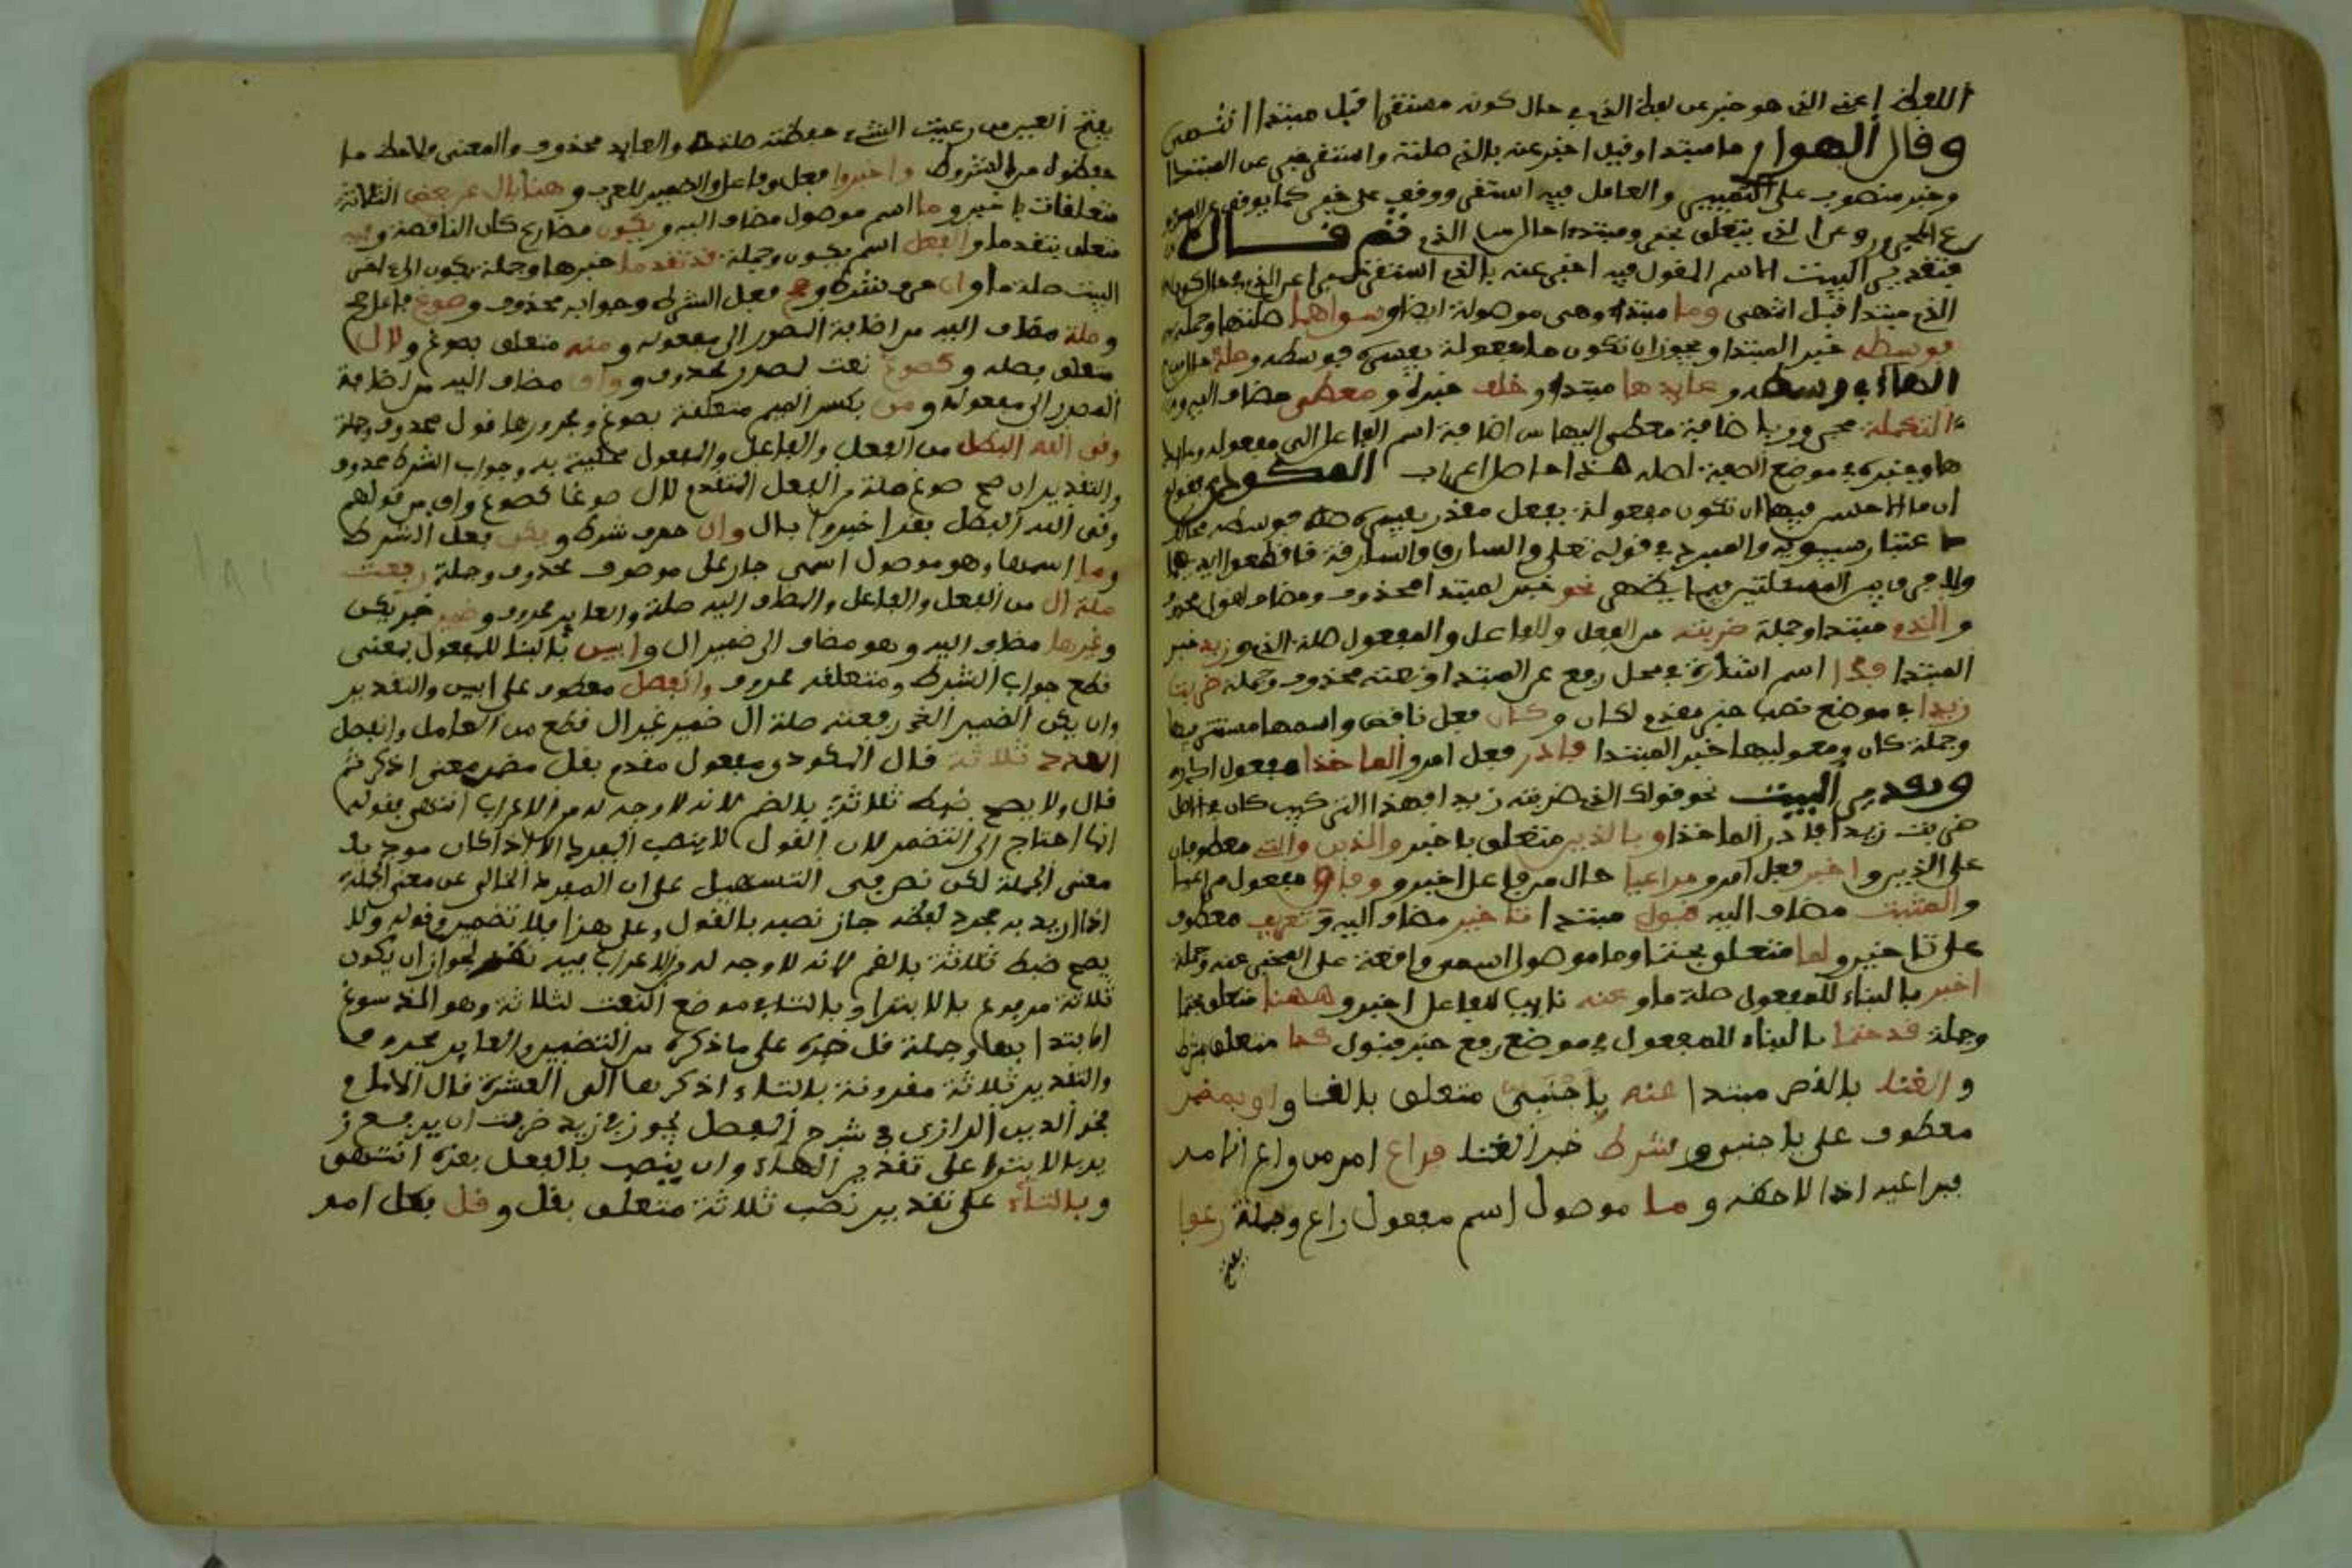 اللفظ اعني الذي هو خبر عن لفظ الذي في حال كونه مستقرا قبل مبتدا انتهى
وقال الهواري ما مبتدا وقيل اخبر عنه بالذي صلته واستقر خبر عن المبتدا
وخبر منصوب على التمييز والعامل فيه استقر ووقف على خبر كما يوقف على
المجرور وعن الذي يتعلق بخبر ومبتدا حال من الذي ثم قال
فتقدير البيت الاسم المقول فيه اخبر عنه بالذي استقر خبرا عن الذي
الذي مبتدا قبل انتهى وما مبتدا وهي موصولة ايضا وسواهما صلتها وجملة
فوسطه خبر المبتدا ويجوز ان تكون ما مفعولة يفسره فوسطه وصلة حال من
الهاء في وسطه وعايدها مبتدا وخلف خبره ومعطي مضاف اليه
التكملة مجرور باضافة معطي اليها من اضافة اسم الفاعل الى مفعوله وما
هو وخبره في موضع الصفة لصلة هذا حاصل اعراب المكودي
ان ما الاحسن فيها ان تكون مفعولة بفعل مقدر يفسره فوسطه
عند سيبويه والمبرد في قوله تعلى والسارق والسارقة فاقطعوا ايديهما
ولا فرق بين المسئلتين فيما يظهر نحو خبر لمبتدا محذوف ومضاف لقول محذوف
والذي مبتدا وجملة ضربته من الفعل والفاعل والمفعول صلة الذي وزيد خبر
المبتدا فذا اسم اشارة في محل رفع على المبتدا ونعته محذوف وجملة ضربت
زيدا في موضع نصب خبر مقدم لكان وكان فعل ناقص واسمها مستتر فيها
وجملة كان ومعموليها خبر المبتدا فادر فعل امر والماخذا مفعول ادر
وتقدير البيت نحو قولك الذي ضربته زيد فهذا التركيب كان في الاصل
ضربت زيدا فادر الماخذا وباللذين متعلق باخبر والذين والتي معطوفان
على اللذين واخبر فعل امر ومراعيا حال من فاعل اخبر ووفاق مفعول مراعيا
والمثبت مضاف اليه قبول مبتدا تاخير مضاف اليه وتعريف معطوف
على تاخير ولما متعلق بحتما وما موصول اسمي واقعة على المخبر عنه وجملة
اخبر بالبناء للمفعول صلة ما وعنه نايب الفاعل اخبر وههنا متعلق بحتما
وجملة قد حتما بالبناء للمفعول في موضع رفع خبر قبول كذا متعلق بشرط
والغنا بالقصر مبتدا عنه باجنبي متعلق بالغنا واو بمضمر
معطوف على باجنبي وشرط خبر الغنا فراع امر من راع الامر
يراعيه اذا لاحظه وما موصول اسم مفعول راع وجملة رعوا
بفتح
بفتح العين من رعيت الشيء حفظته صلة ما والعايد محذوف والمعنى ولاحظ ما
حفظوه من الشروط واخبروا فعل وفاعل والضمير للعرب وهنا بال عن بعض الثلاثة
متعلقات باخبروا وما اسم موصول مضاف اليه ويكون مضارع كان الناقصة وفيه
متعلق بتقدما والفعل اسم يكون وجملة قد تقدما خبرها وجملة يكون الى اخر
البيت صلة ما وان حرف شرط وصح فعل الشرط وجوابه محذوف وصوغ فاعل صح
وصلة مضاف اليه من اضافة المصدر الى مفعوله ومنه متعلق بصوغ ولال
متعلق بصلة وكصوغ نعت لمصدر محذوف وواق مضاف اليه من اضافة
المصدر الى مفعوله ومن بكسر الميم متعلقة بصوغ ومجرورها قول محذوف وجملة
وقى الله البطل من الفعل والفاعل والمفعول محكية به وجواب الشرط محذوف
والتقدير ان صح صوغ صلة من الفعل المتقدم لال صوغا كصوغ واق من قولهم
وقى الله البطل فقد اخبروا بال وان حرف شرط ويكن فعل الشرط
وما اسمها وهو موصول اسمي جار على موصوف محذوف وجملة رفعت
صلة ال من الفعل والفاعل والمضاف اليه صلة والعايد محذوف وضمير خبر يكن
وغيرها مضاف اليه وهو مضاف الى ضمير ال وابين بالبناء للمفعول بمعنى
قطع جواب الشرط ومتعلقه محذوف وانفصل معطوف على ابين والتقدير
وان يكن الضمير الذي رفعته صلة ال ضمير غير ال قطع من العامل وانفصل
العدد ثلاثة قال المكودي مفعول مقدم بقل مضمر معنى اذكر ثم
قال ولا يصح ضبط ثلاثة بالضم لانه لا وجه له من الاعراب انتهى بقوله
انما احتاج الى التضمن لان القول لا ينصب المفرد الا اذا كان مودي به
معنى الجملة لكن نص في التسهيل على ان المفرد الخالي عن معنى الجملة
اذا اريد به مجرد لفظه جاز نصبه بالقول وعلى هذا فلا تضمين وقوله ولا
يصح ضبط ثلاثة بالضم لانه لا وجه له من الاعراب فيه نظر لجواز ان يكون
ثلاثة مرفوع بالابتداء وبالتاء موضع النعت لثلاثة وهو الذي سوغ
الابتدا بها وجملة قل خبره على ما ذكره من التضمين والعايد محذوف
والتقدير ثلاثة مقرونة بالتاء اذكرها الى العشرة قال الامام
فخر الدين الرازي في شرح المفصل يجوز في زيد ضربت ان يرفع ز
يد بالابتدا على تقدير الهاء وان ينصب بالفعل بعده انتهى
وبالتاء على تقدير نصب ثلاثة متعلق بقل وقل فعل امر